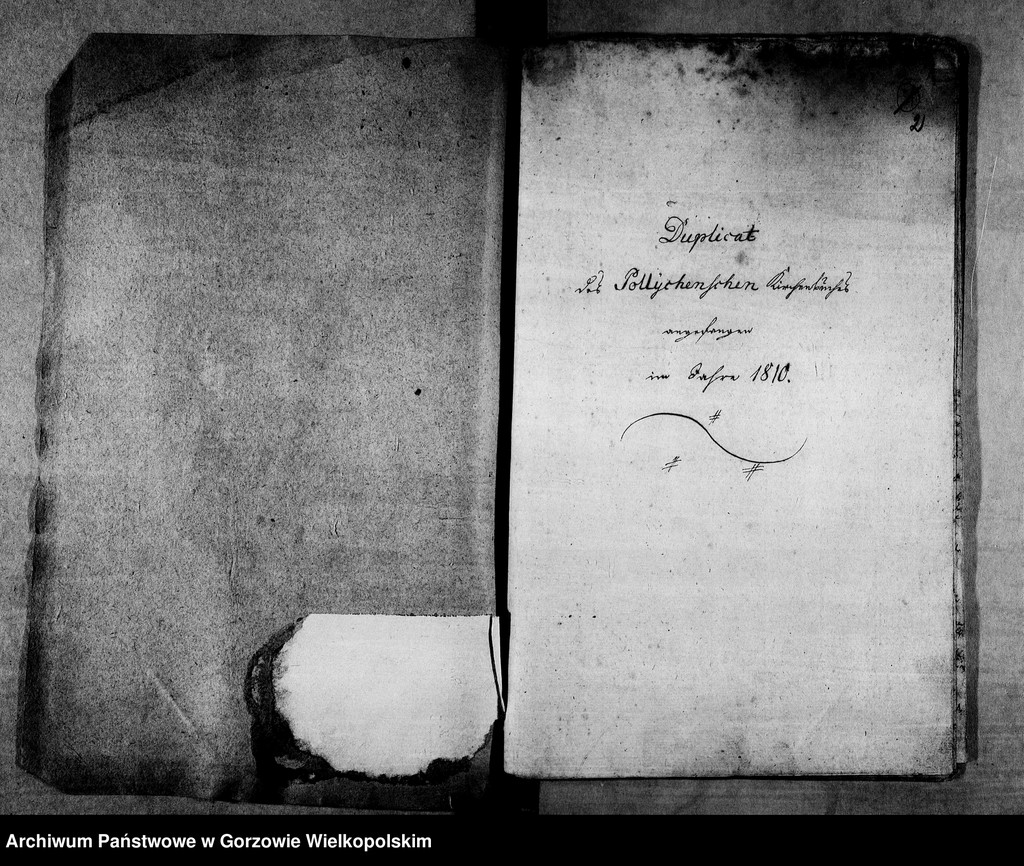 2
Duplicat
des Pollychenschen Kirchenbuches
angefangen
im Jahre 1810.
Archiwum Państwowe w Gorzowie Wielkopolskim